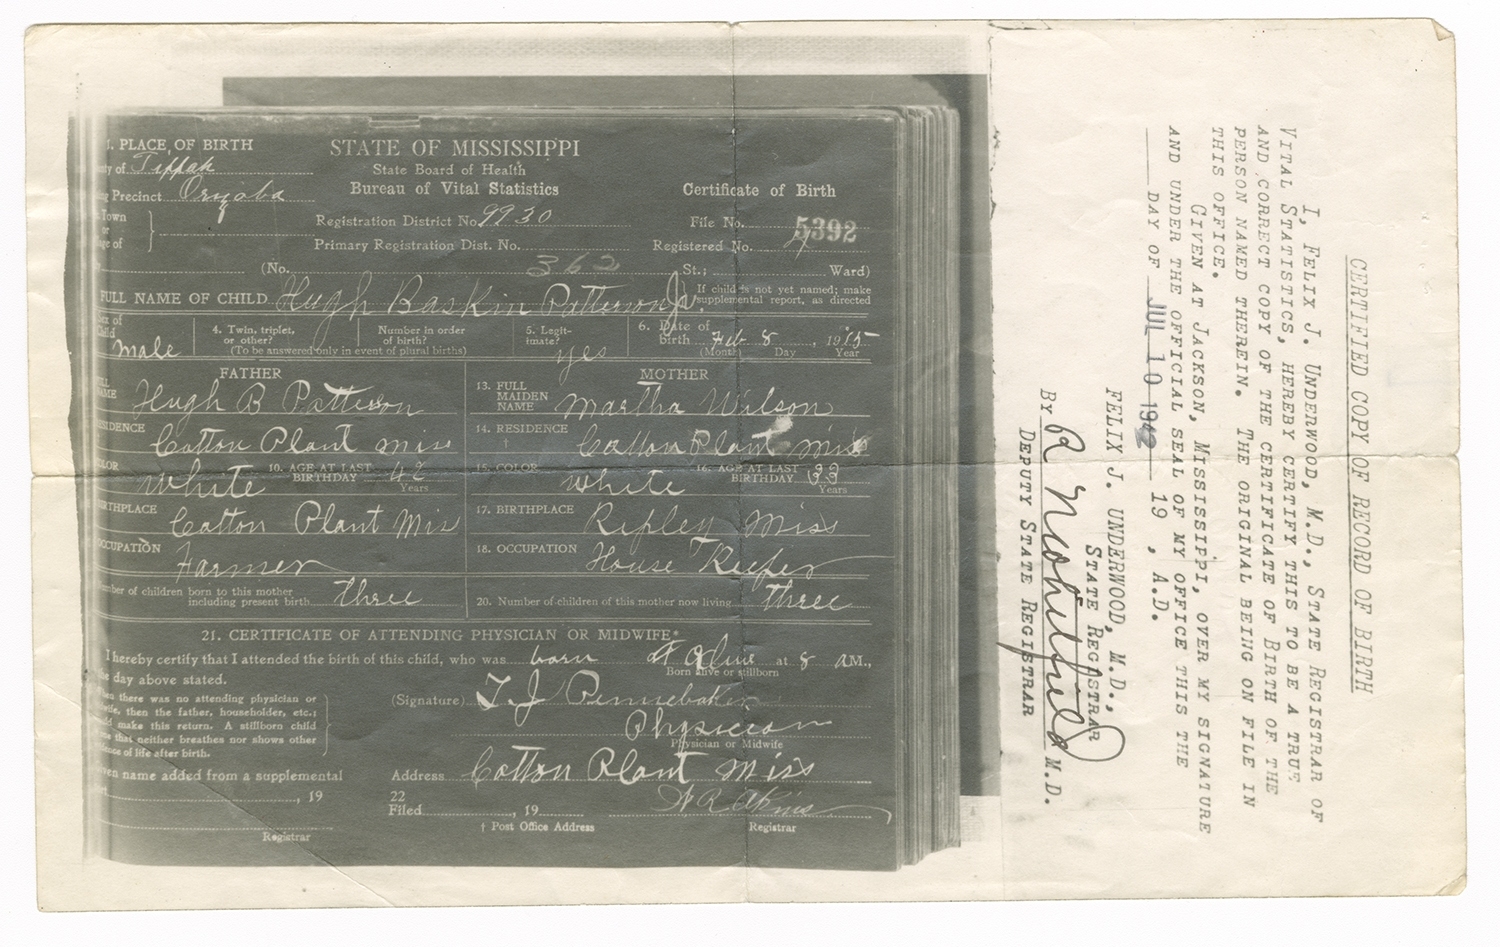 1. PLACE OF BIRTH
STATE OF MISSISSIPPI
State Board of Health
Bureau of Vital Statistics
Certificate of Birth
nty of Tippah
Precinct
Town
or
age of
Registration District No. 9930
File No. 5392
Primary Registration Dist. No.
Registered No. 4
(No. 362 St.; Ward)
FULL NAME OF CHILD Hugh Baskin Patterson Jr.
If child is not yet named; make
supplemental report, as directed
Sex of
Child male
4. Twin, triplet,
or other?
Number in order
of birth?
(To be answered only in event of plural births)
5. Legit-
imate? yes
6. Date of
birth Feb 8, 1915
(Month) Day Year
FATHER
NAME Hugh B Patterson
RESIDENCE Cotton Plant Miss
COLOR White
10. AGE AT LAST
BIRTHDAY 42
Years
BIRTHPLACE Cotton Plant Mis
OCCUPATION Farmer
Number of children born to this mother
including present birth three
MOTHER
13. FULL
MAIDEN
NAME Martha Wilson
14. RESIDENCE Cotton Plant Miss
†
15. COLOR White
16. AGE AT LAST
BIRTHDAY 33
Years
17. BIRTHPLACE Ripley Miss
18. OCCUPATION House Keeper
20. Number of children of this mother now living three
21. CERTIFICATE OF ATTENDING PHYSICIAN OR MIDWIFE*
I hereby certify that I attended the birth of this child, who was born Alive at 8 AM.,
Born alive or stillborn
day above stated.
When there was no attending physician or
wife, then the father, householder, etc.;
make this return. A stillborn child
one that neither breathes nor shows other
dence of life after birth.
(Signature) T. J. Pennebaker
Physician
Physician or Midwife
ven name added from a supplemental
, 19
Registrar
Address Cotton Plant Miss
22
Filed , 19
† Post Office Address
Registrar
CERTIFIED COPY OF RECORD OF BIRTH
I, FELIX J. UNDERWOOD, M.D., STATE REGISTRAR OF
VITAL STATISTICS, HEREBY CERTIFY THIS TO BE A TRUE
AND CORRECT COPY OF THE CERTIFICATE OF BIRTH OF THE
PERSON NAMED THEREIN. THE ORIGINAL BEING ON FILE IN
THIS OFFICE.
GIVEN AT JACKSON, MISSISSIPPI, OVER MY SIGNATURE
AND UNDER THE OFFICIAL SEAL OF MY OFFICE THIS THE
DAY OF JUL 10 1942 19 , A.D.
FELIX J. UNDERWOOD, M.D.,
STATE REGISTRAR
BY R N Whitfield M.D.
DEPUTY STATE REGISTRAR